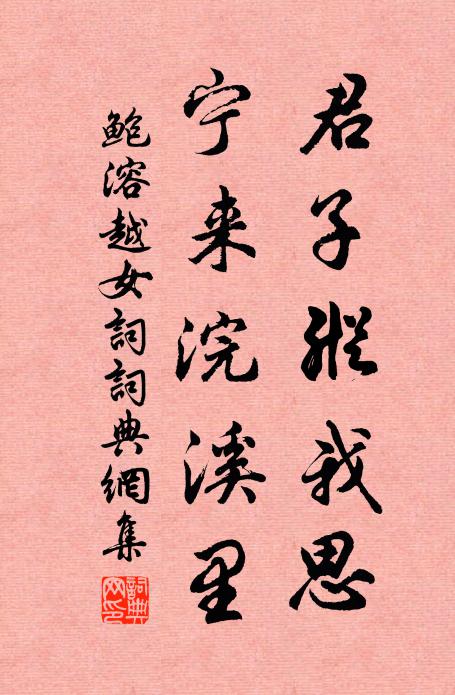 君子縱我思
宁来浣溪里
鲍溶越女詞詞典網集
詞典網印